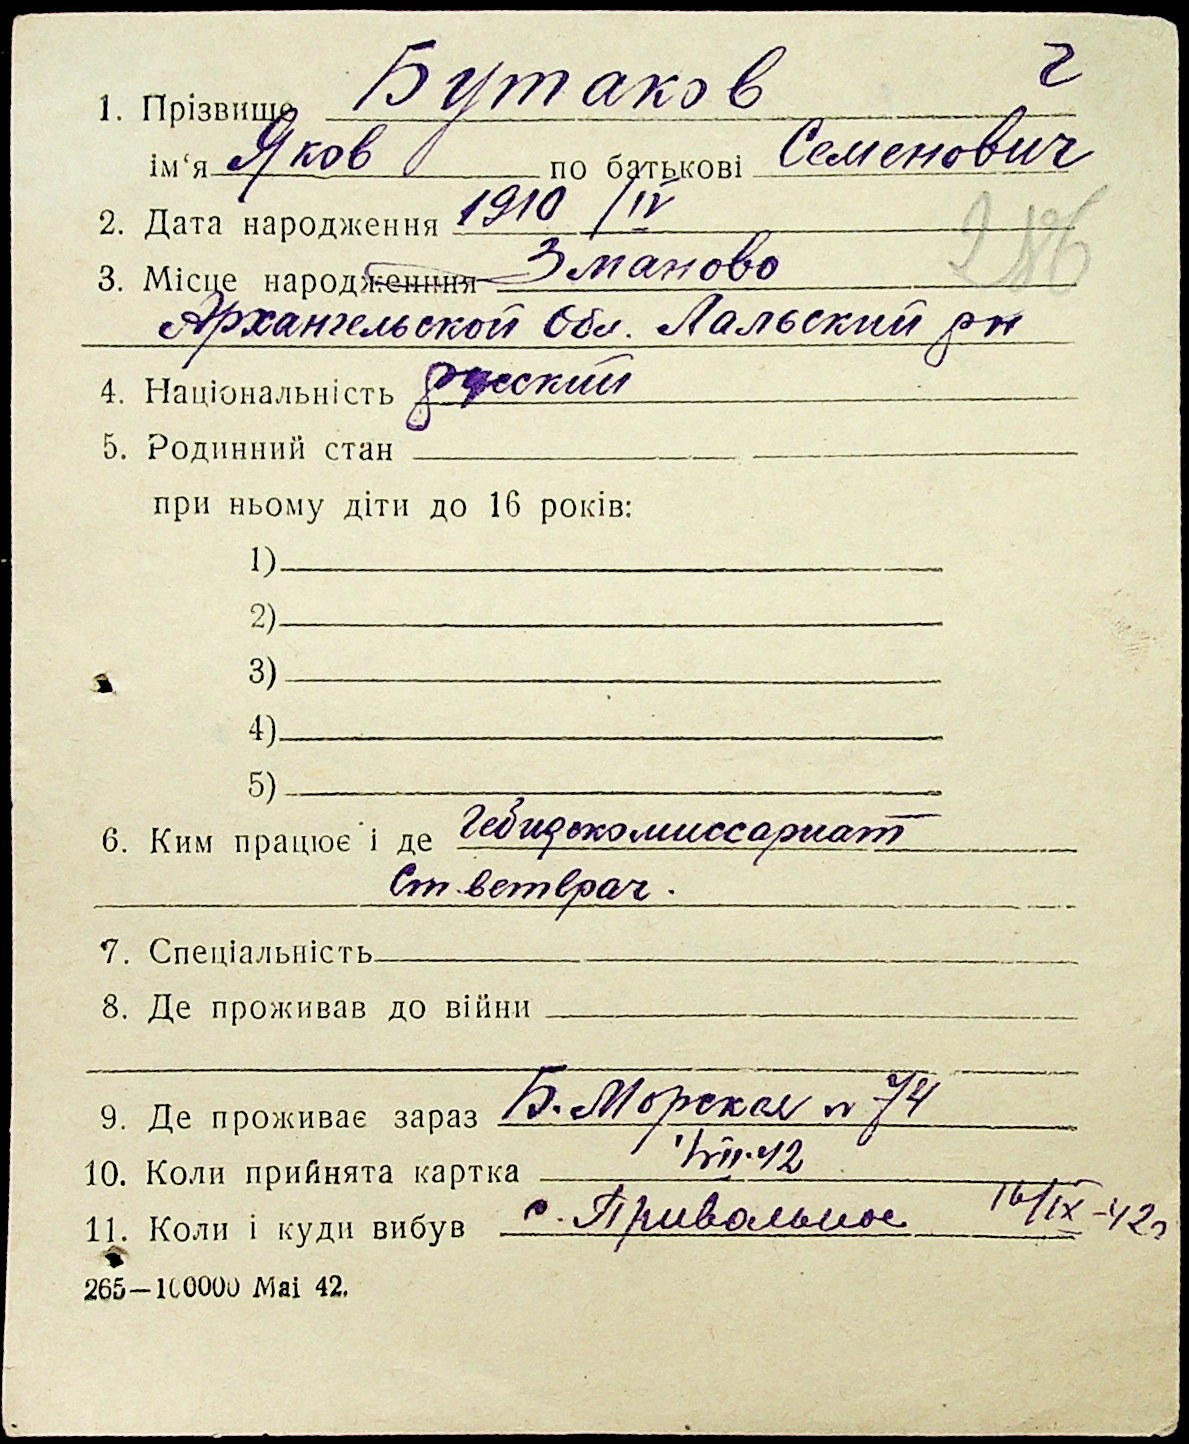 г
1. Прізвище Бутаков
ім‘я Яков по батькові Семенович
2. Дата народження 1910 /IV
286
3. Місце народження Зманово
Архангельской Обл. Лальский рн
4. Національність русский
5. Родинний стан
при ньому діти до 16 років:
1)
2)
3)
4)
5)
6. Ким працює і де Гебидскомиссариат
Ст. ветврач.
7. Спеціальність
8. Де проживав до війни
9. Де проживає зараз Б. Морская № 74
10. Коли прийнята картка VII-42
11. Коли і куди вибув с. Привольное 16/IX-42г
265—100000 Mai 42.